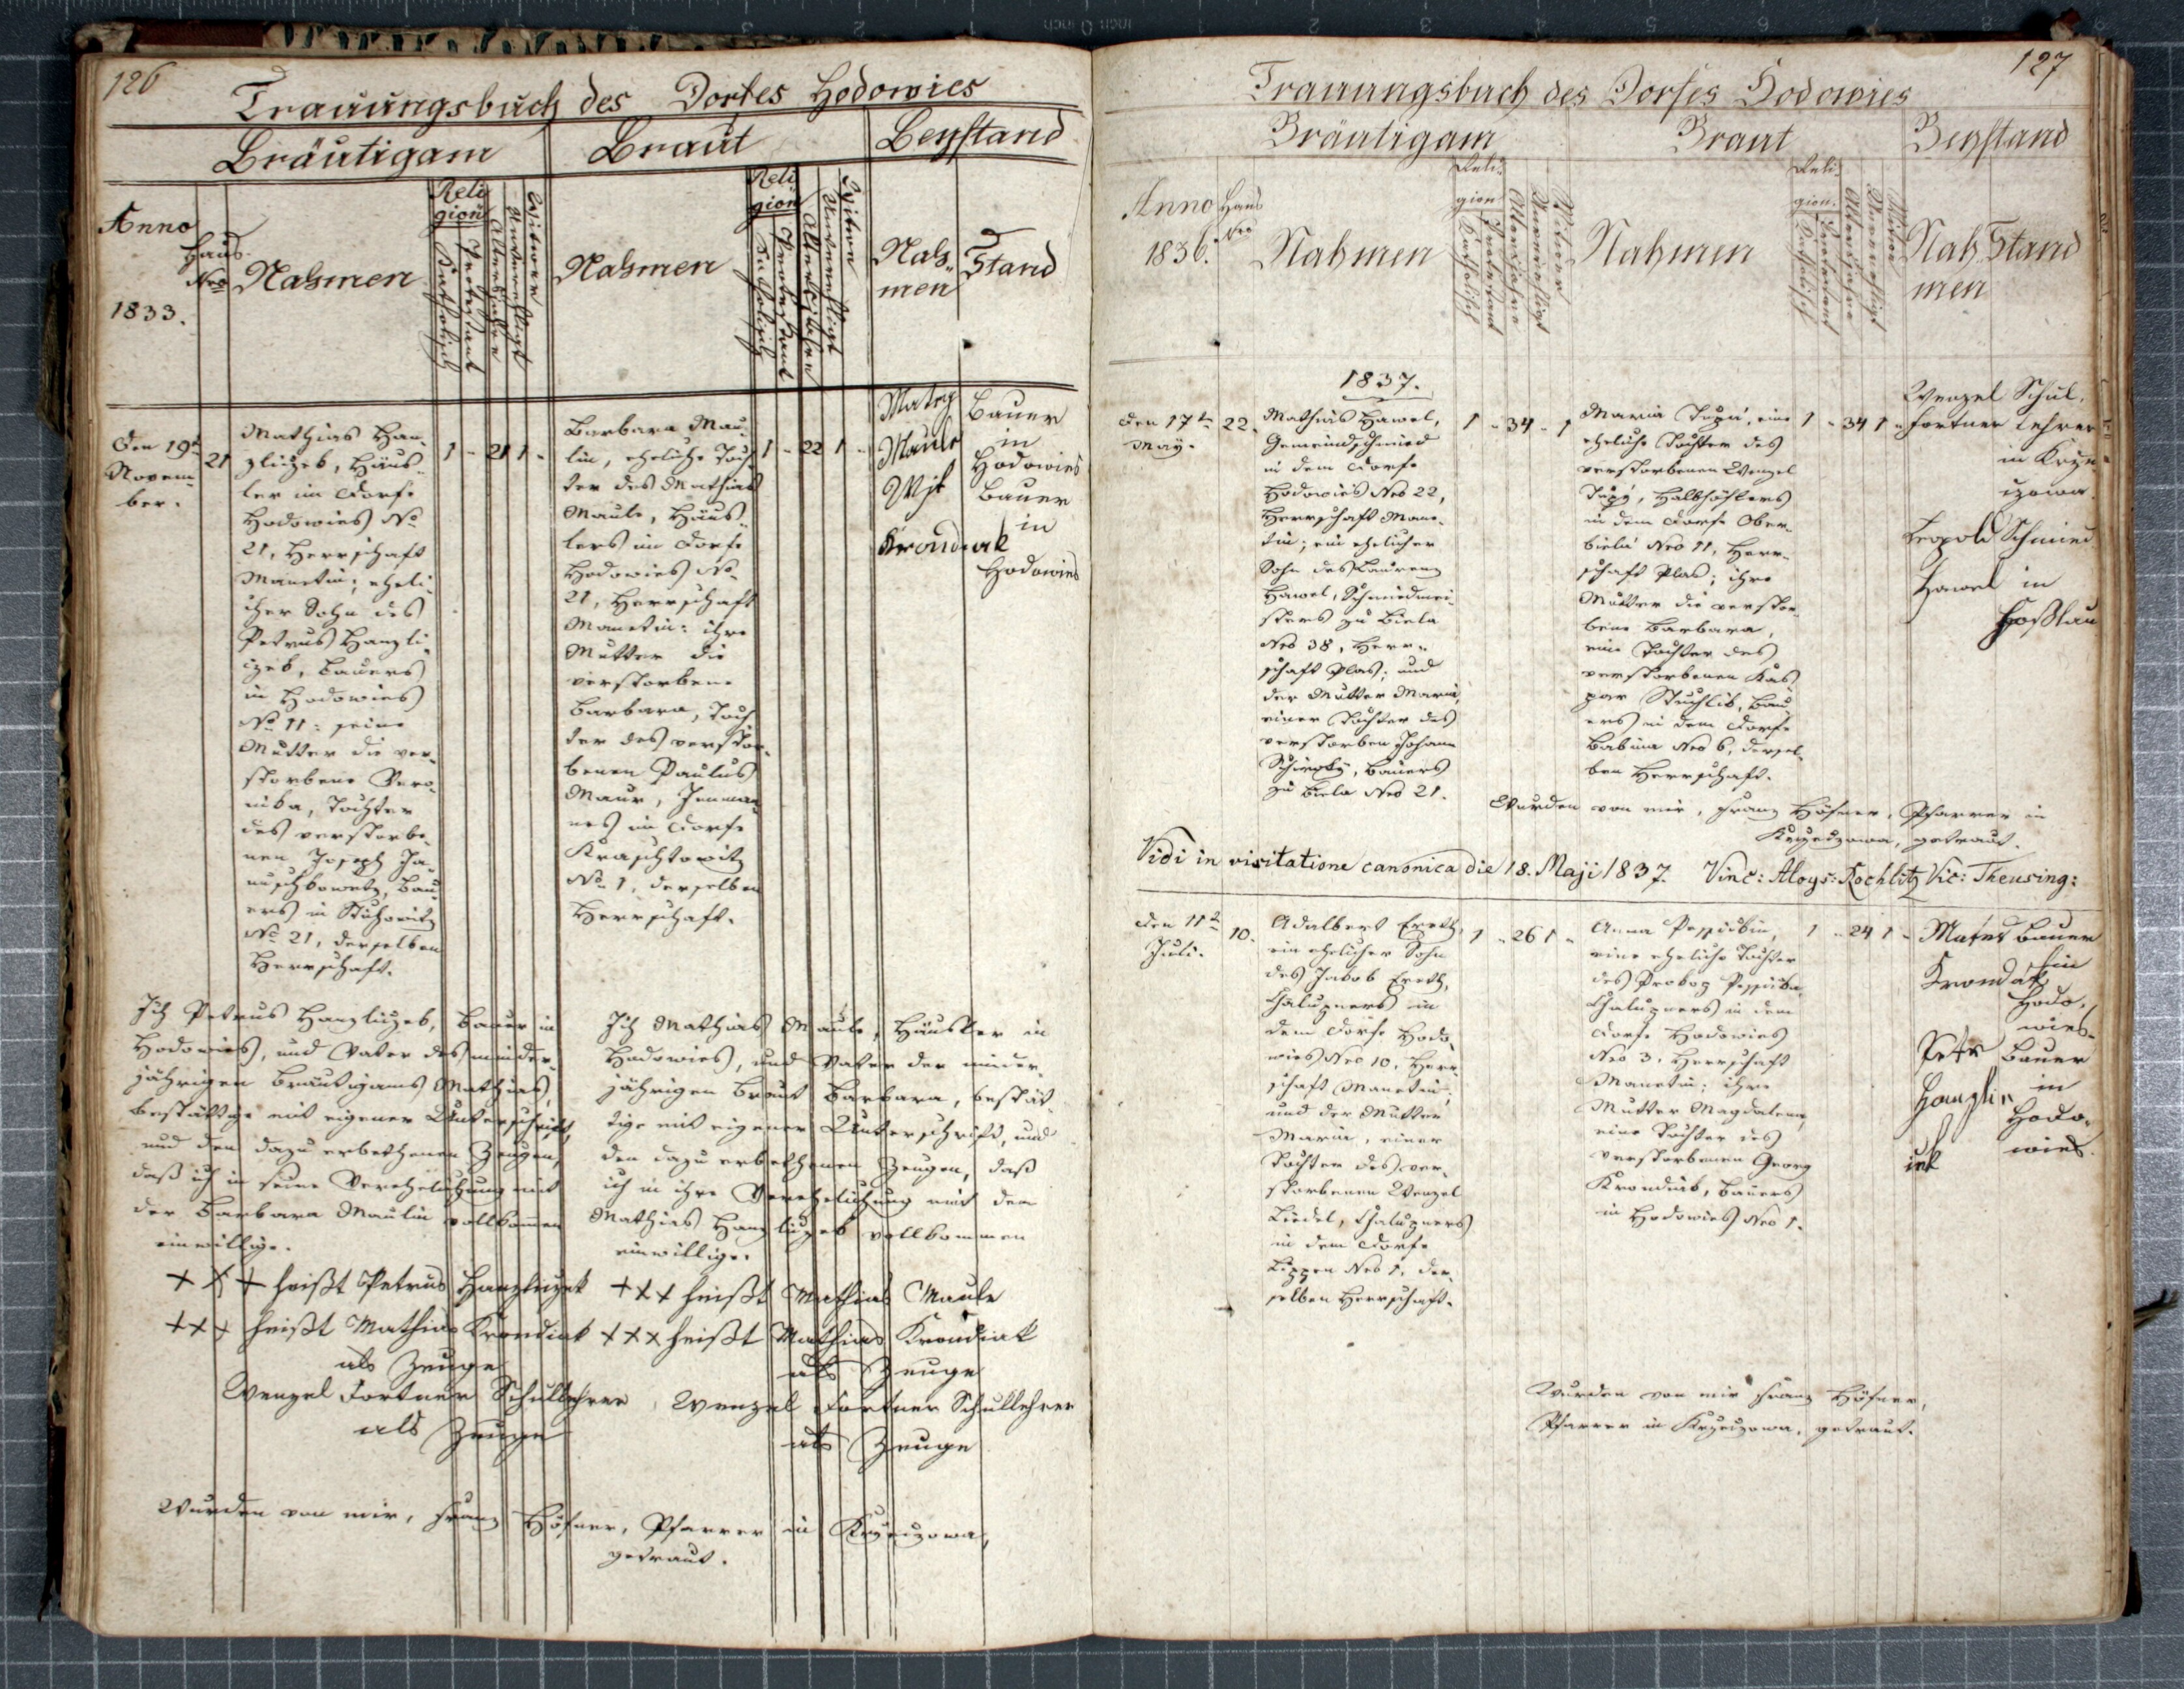 126
Trauungsbuch des Dorfes Hodowies
Bräutigam
Braut
Beystand
Anno
1833.
Haus
Nro
Nahmen
Religion
Katholisch
Protestant
Alter Jahre
Unverehligt
Witwer
Nahmen
Religion
Katholisch
Protestant
Alter Jahre
Unverehligt
Nah-
men
Stand
Den 19t
Novem-
ber.
21
Mathias Han-
zliczek, Häus-
ler im Dorfe
Hodowies No
21, Herrschaft
Manetin; eheli-
cher Sohn des
Petrus Hanzli-
czek, Bauers
in Hodowies
No 11: seine
Mutter die ver-
storbene Vero-
nika, Tochter
des verstorbe-
nen Joseph Ja-
nuschkowetz, Bau-
ers in Stuhowitz
No 21, derselben
Herrschaft.
1 - 21 1 -
Barbara Mau-
lin, eheliche Toch-
ter des Mathias
Maule, Häus-
lers im Dorfe
Hodowies No
21, Herrschaft
Manetin: ihre
Mutter die
verstorbene
Barbara, Toch-
ter des verstor-
benen Paulus
Maur,
im Dorfe
Kraschtowitz
No 1, derselben
Herrschaft.
1 - 22 1 -
Matej
Maule
Bauer
in
Hodowies
Mjk
Krondiak
Bauer
in
Hodowies
Ich Petrus Hanzliczek, Bauer in
Hodowies, und Vater des minder-
jährigen Bräutigams Mathias,
bestättige mit eigener Unterschrift,
und den dazu erbethenen Zeugen,
daß ich in seine Verehelichung mit
der Barbara Maulin vollkommen
einwillige.
+ + + heißt Petrus Hanzliczek
+ + + heißt Mathias Krondiak
als Zeuge
Wenzel Fortner Schullehrer
als Zeuge
Ich Mathias Maule, Häusler in
Hodowies, und Vater der minder-
jährigen Braut Barbara, bestät-
tige mit eigener Unterschrift, und
den dazu erbethenen Zeugen, daß
ich in ihre Verehelichung mit dem
Mathias Hanzliczek vollkommen
einwillige.
+ + + heißt Mathias Maule
+ + + heißt Mathias Krondiak
als Zeuge
Wenzel Fortner Schullehrer
als Zeuge
Wurden von mir, Franz Höfner, Pfarrer in Kryczowa,
getraut.
127
Trauungsbuch des Dorfes Hodowies
Bräutigam
Braut
Beystand
Anno
1836.
Haus
Nro
Nahmen
Reli-
gion
Katholisch
Protestant
Alter Jahre
Unverehligt
Witwer
Nahmen
Reli-
gion.
Katholisch
Protestant
Alter Jahre
Unverehligt
Nah
men
Stand
1837.
Den 17t
May.
22.
Mathias Hawel,
Gemeindschmied
in dem Dorfe
Hodowies Nro 22,
Herrschaft Mane-
tin; ein ehelicher
Sohn des Laurenz
Hawel, Schmiedmei-
sters zu Biela
Nro 38, Herr-
schaft Plas; und
der Mutter Maria,
einer Tochter des
verstorben Johann
Schiroky, Bauers
zu Biela Nro 21.
1 - 34 - 1
Maria Tupa, eine
eheliche Tochter des
verstorbenen Wenzel
Tupy, Halbhöflers
in dem Dorfe Ober-
biela Nro 11, Herr-
schaft Plas; ihre
Mutter die verstor-
bene Barbara,
eine Tochter des
verstorbenen Kas-
par Stuchlik, Bau-
ers in dem Dorfe
Babina Nro 6, dersel-
ben Herrschaft.
1 - 34 1 -
Wenzel Schul-
Fortner Lehrer
in Kry-
czowa.
Leopold Schmied
Hawel in
Hoßlau
Wurden von mir, Franz Höfner, Pfarrer in
Kryczowa, getraut.
Vidi in visitatione canonica die 18. Maji 1837. Vinc: Aloys: Rochlitz Vic: Theusing:
Den 11t
Juli.
10.
Adalbert Ereth,
ein ehelicher Sohn
des Jakob Ereth,
Chalupners in
dem Dorfe Hodo-
wies Nro 10, Herr-
schaft Manetin;
und der Mutter
Maria, einer
Tochter des ver-
storbenen Wenzel
Liedel, Chalupners
in dem Dorfe
Lippen Nro 1, der-
selben Herrschaft.
1 - 26 1 -
Anna
eine eheliche Tochter
des Prokop
Chalupners in dem
Dorfe Hodowies
Nro 3, Herrschaft
Manetin; ihre
Mutter Magdalena,
eine Tochter des
verstorbenen Georg
Krondiak, Bauers
in Hodowies Nro 1.
1 - 24 1 -
Mateg Bauer
Krondak in
Hodo-
wies.
Petr Bauer
Hanzli- in
Hodo-
wies.
cek
Wurden von mir Franz Höfner,
Pfarrer in Kryczowa, getraut.